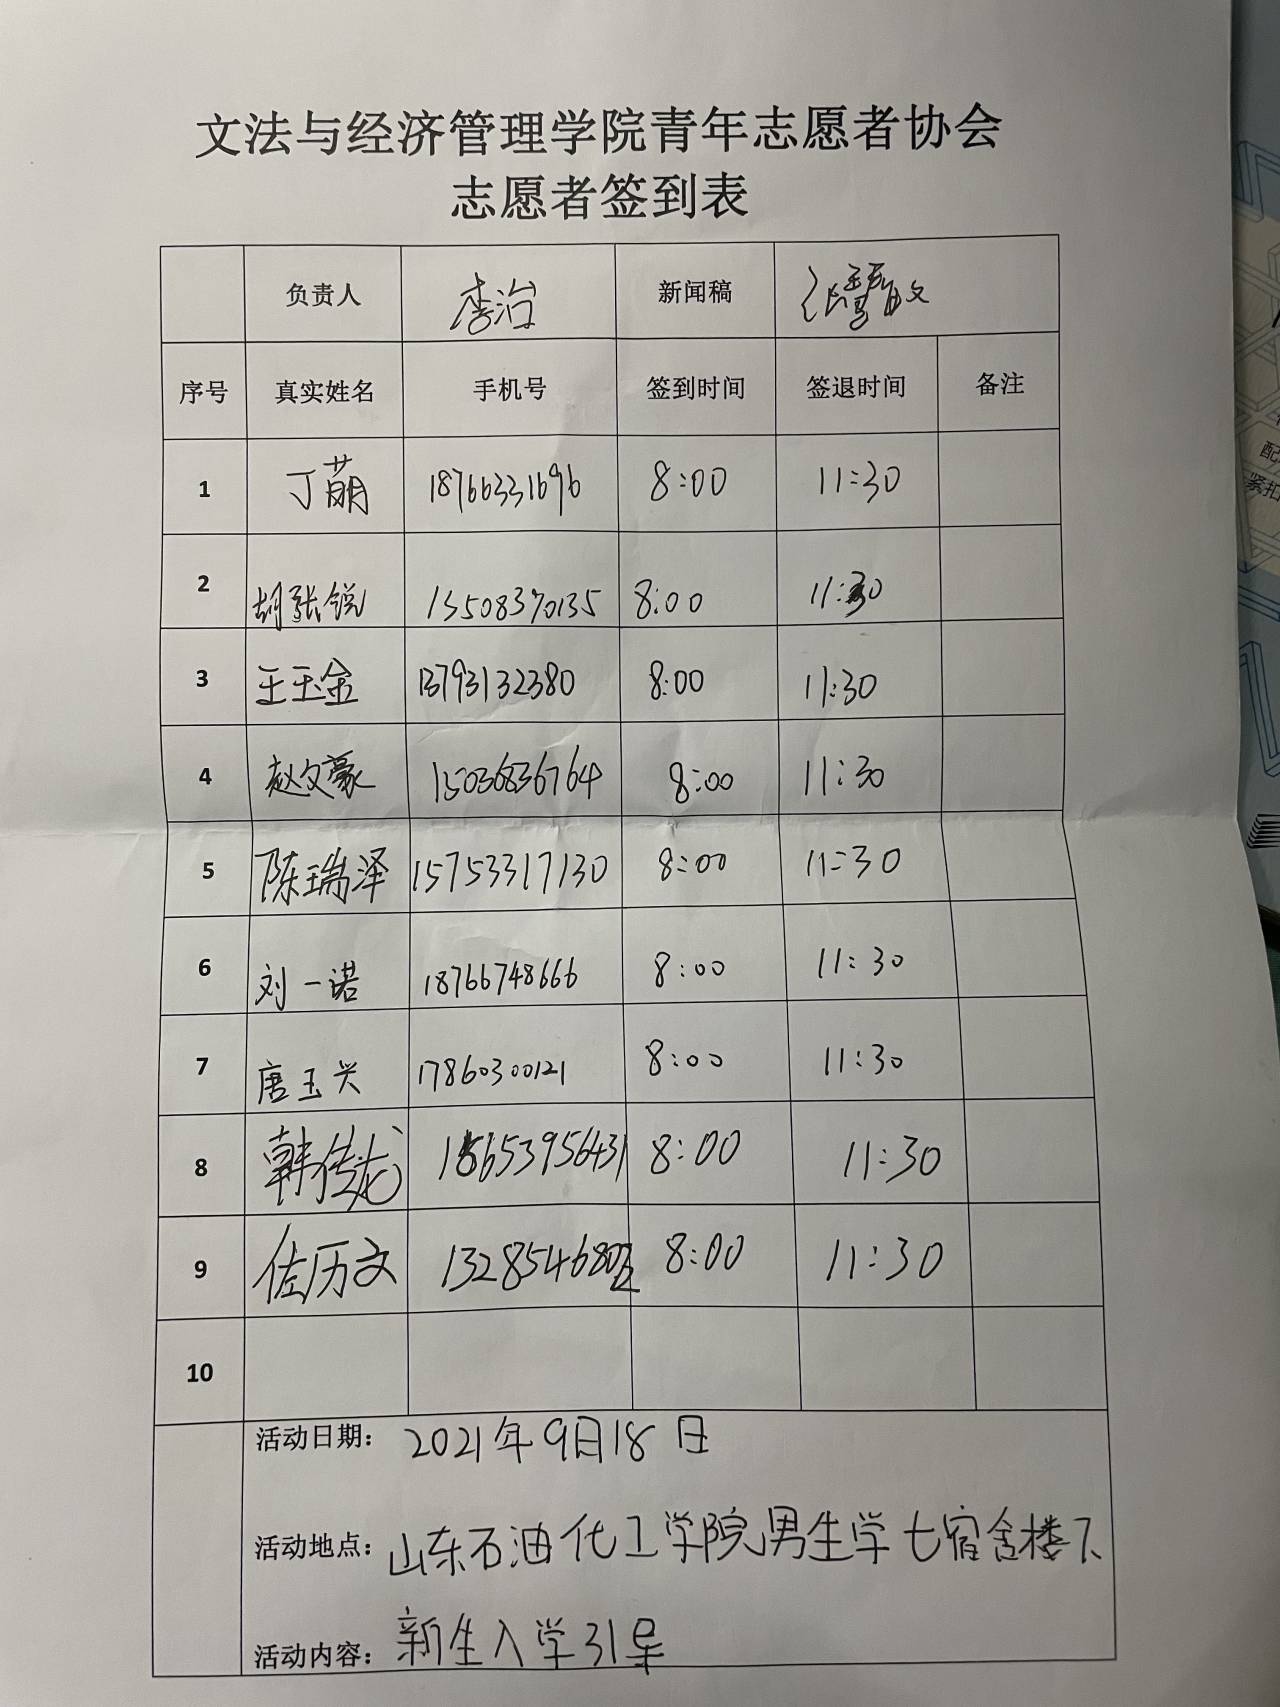 文法与经济管理学院青年志愿者协会
志愿者签到表
负责人 李治 新闻稿
序号 真实姓名 手机号 签到时间 签退时间 备注
1 丁萌 18766331696 8:00 11:30
2 胡张锐 13508370135 8:00 11:30
3 王玉金 13793132380 8:00 11:30
4 赵文豪 15036836764 8:00 11:30
5 陈瑞泽 15753317130 8:00 11:30
6 刘一诺 18766748666 8:00 11:30
7 唐玉兴 17860300121 8:00 11:30
8 韩传龙 18653956431 8:00 11:30
9 佐历文 8:00 11:30
10
活动日期: 2021年9月18日
活动地点: 山东石油化工学院男生学七宿舍楼下
活动内容: 新生入学引导